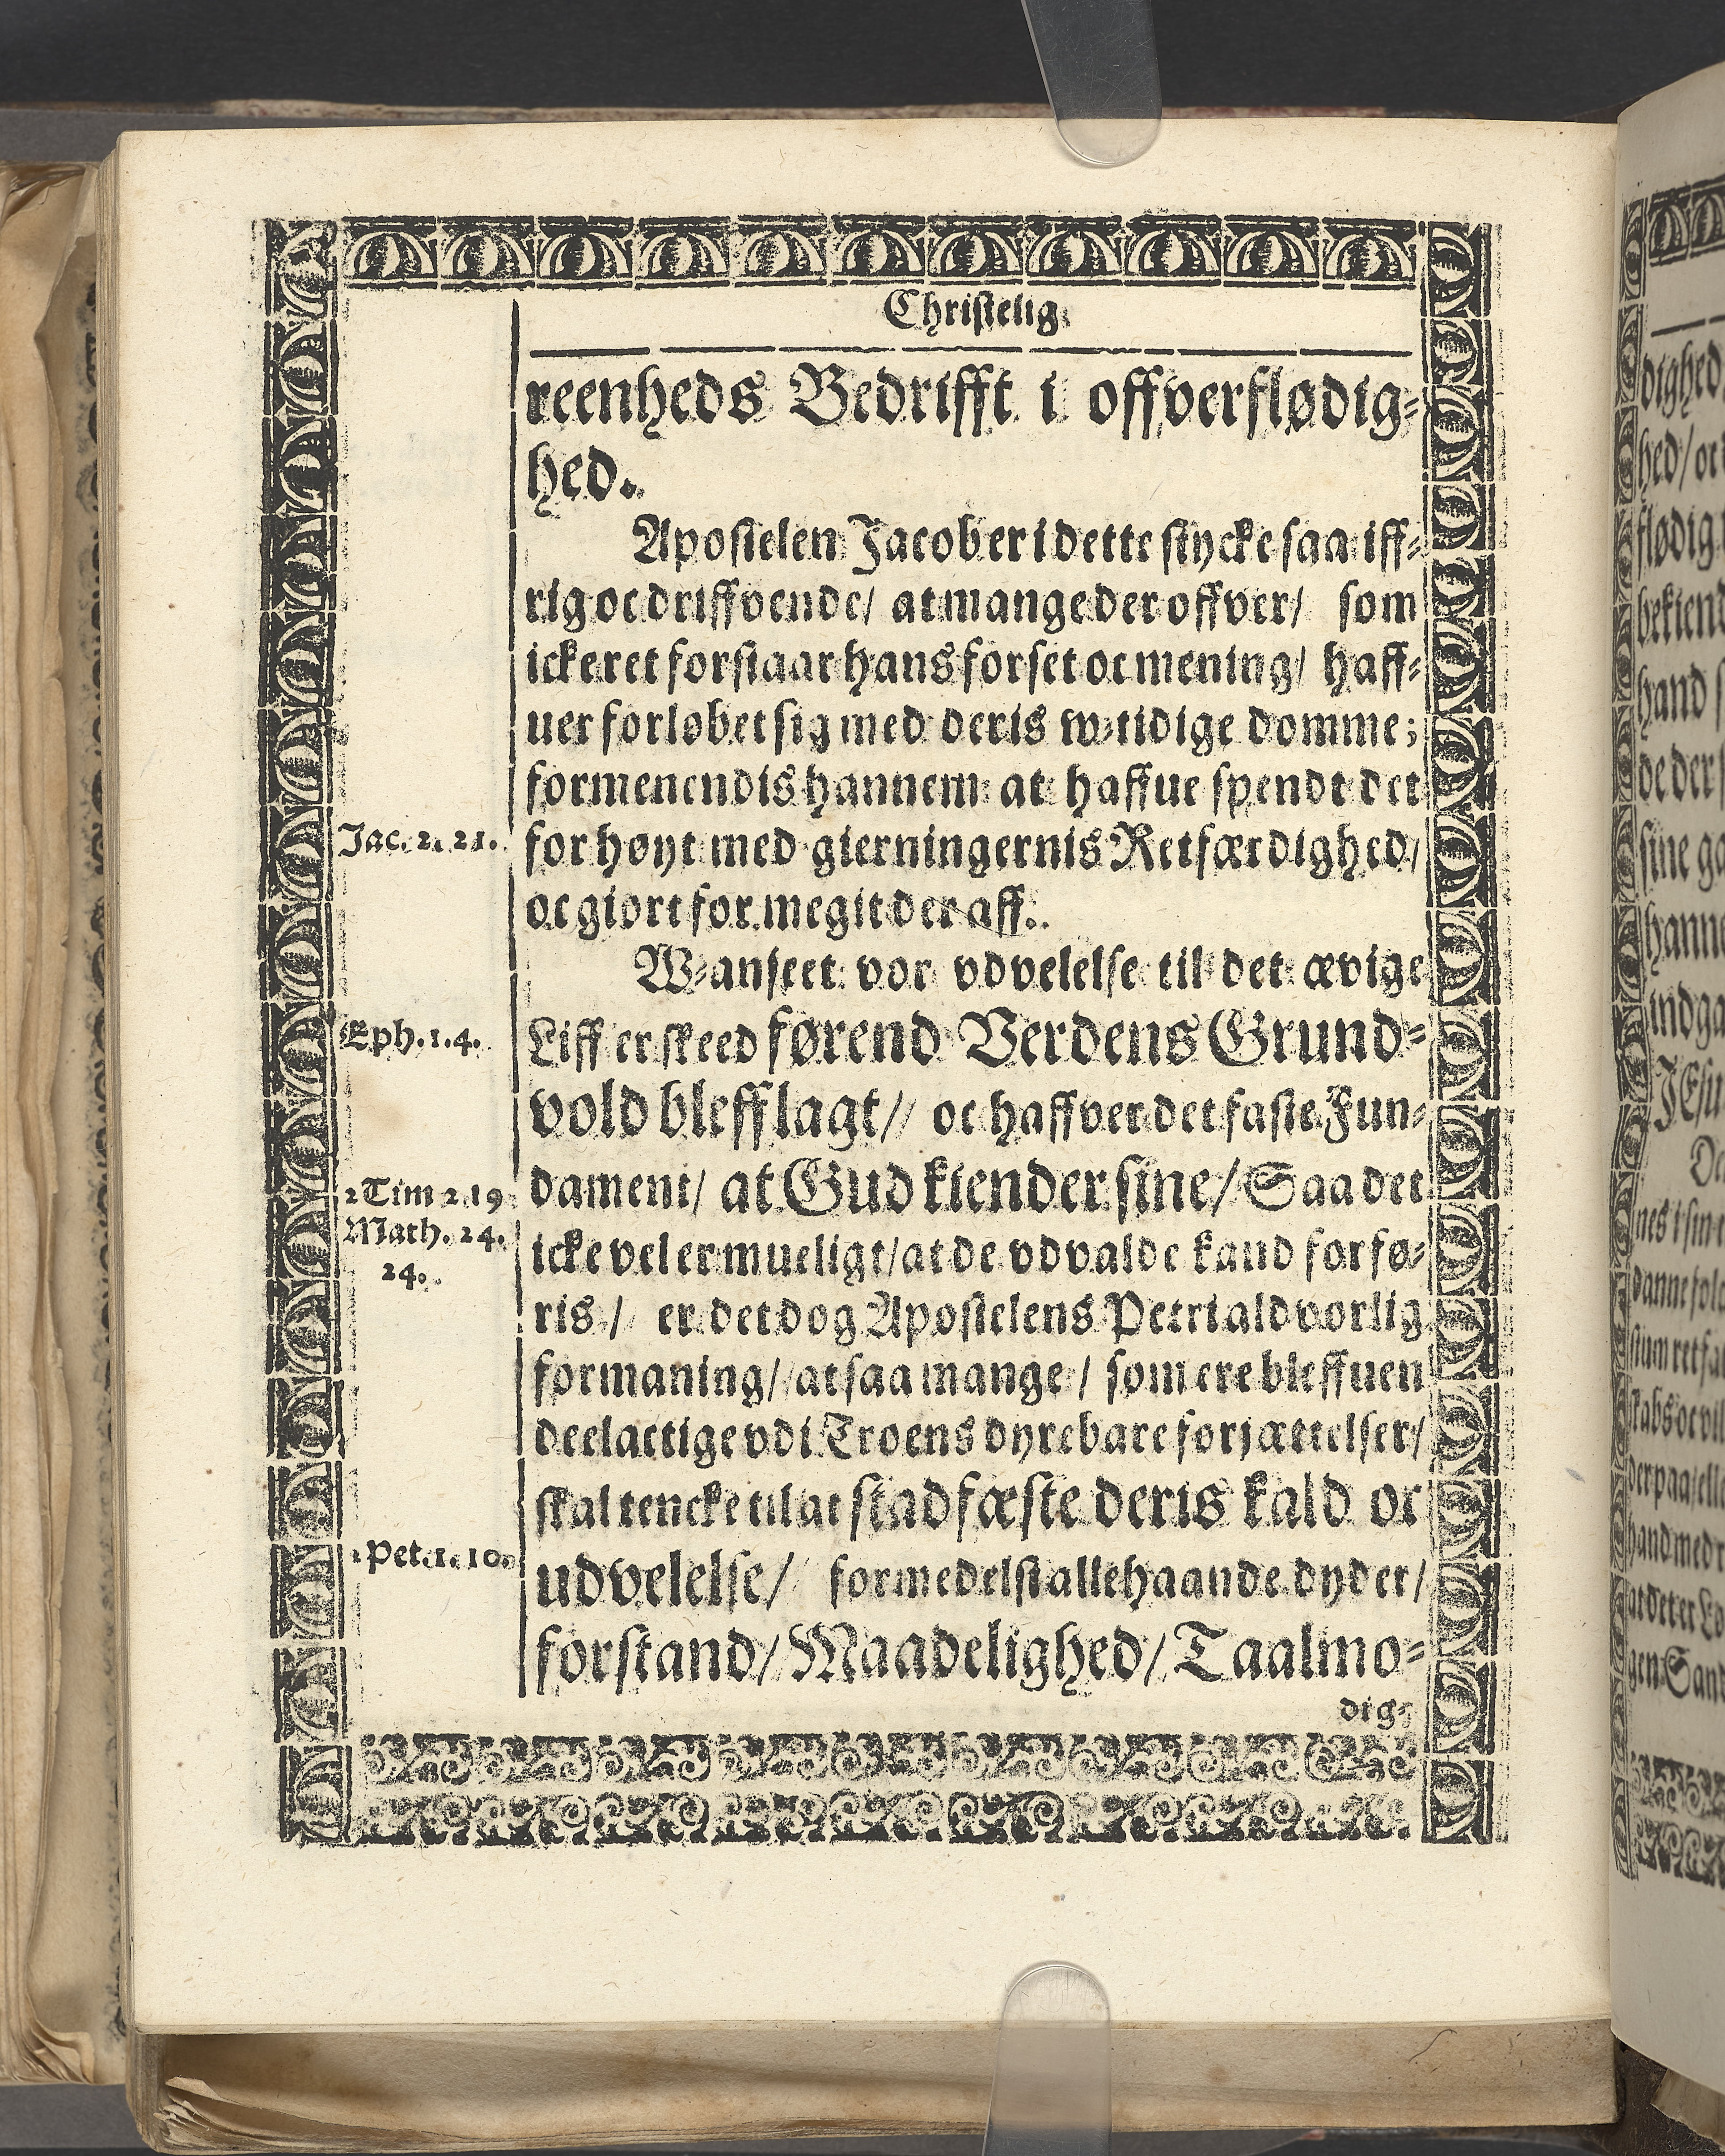 Christelig
reenheds Bedrifft i offverflødig=
hed.
Apostelen Jacob er i dette stycke saa iff=
rig oc driffvende/ at mange der offver/ som
icke ret forstaar hans forset oc mening/ haff=
uer forløbet sig med deris w=tidige domme;
formenendis hannem at haffue spendt det
for høyt med gierningernis Retfærdighed/
Jac. 2. 21.
oc giort for megit der aff.
W=anseet vor vdvelelse til det ævige
Liff er skeed førend Verdens Grund=
Eph. 1. 4.
vold bleff lagt/ oc haffver det faste Fun=
dament/ at Gud kiender sine/ Saa det
2 Tim 2. 19
Math. 24.
24.
icke vel er mueligt/ at de vdvalde kand forfø=
ris/ er det dog Apostelens Petri aldvorlig
formaning/ at saa mange/ som ere bleffuen
deelactige vdi Troens dyrebare forjættelser/
skal tencke til at stadfæste deris kald oc
udvelelse/ formedelst allehaande dyder/
2 Pet. 1. 10.
forstand/ Maadelighed/ Taalmo=
dig=